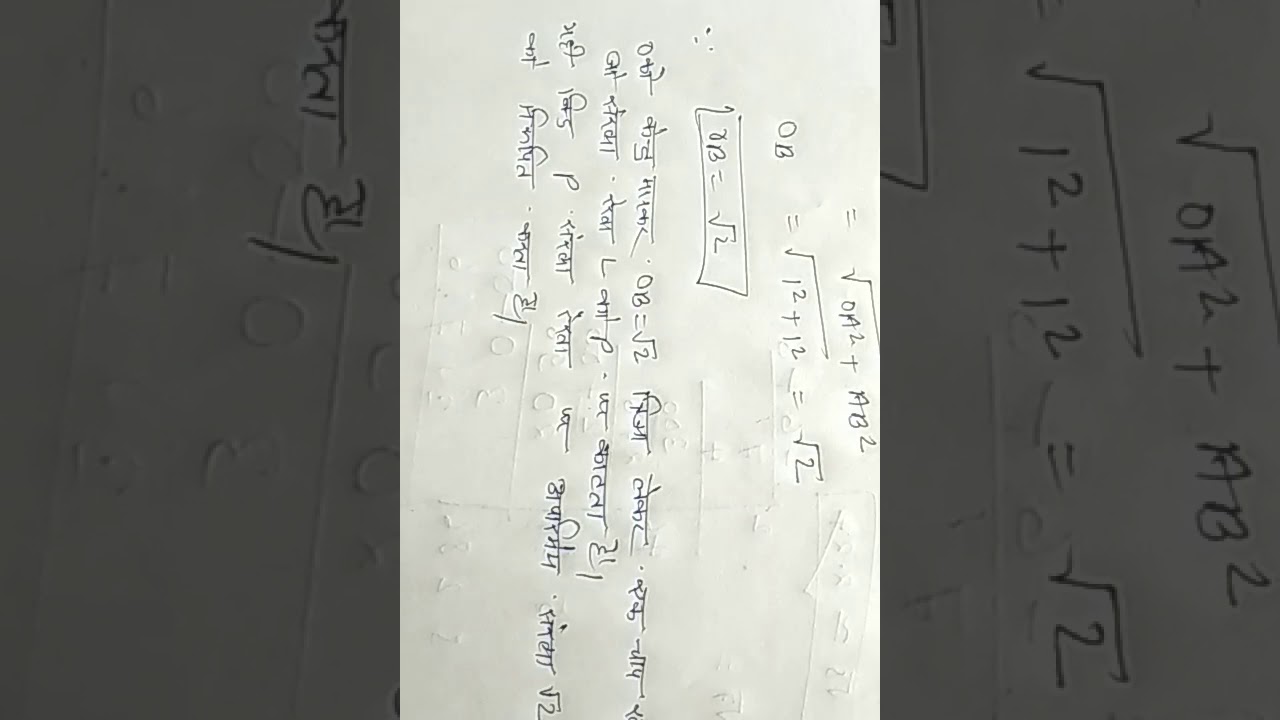 = √OA² + AB²
OB = √1² + 1² = √2
∵ OB = √2
० को केन्द्र मानकर OB = √2 त्रिज्या लेकर एक चाप
जो संख्या रेखा L को P पर काटता है।
यही बिंदु P संख्या रेखा पर अपरिमेय संख्या √2
को निरूपित करता है।